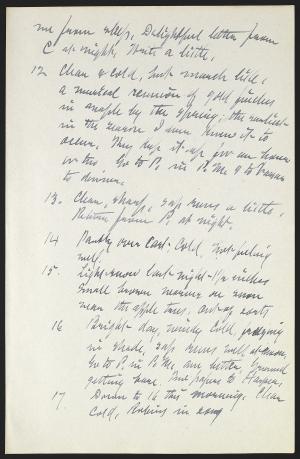 me from sleep. Delightful letter from
C at night. Write a little.
12 Clear & cold, but march like;
a musical reunion of gold finches
in maple by the spring; the earliest
in the season I ever knew it to
occur. They kept it up for an hour
or two. Go to P. in P.M. &
to dinner.
13. Clear, sharp, sap runs a little,
Return from P. at night.
14 Partly over cast. Cold, not feeling
well.
15. Light snow last night - 1½ inches
Small brown on snow
near the apple trees, out of sorts
16 Bright day, windy cold, freezing
in shade, sap runs well at noon,
Go to P. in P.M. am better, Ground
getting bare. papers to
17. Down to 16 this morning. Clear
Cold, Robins in song